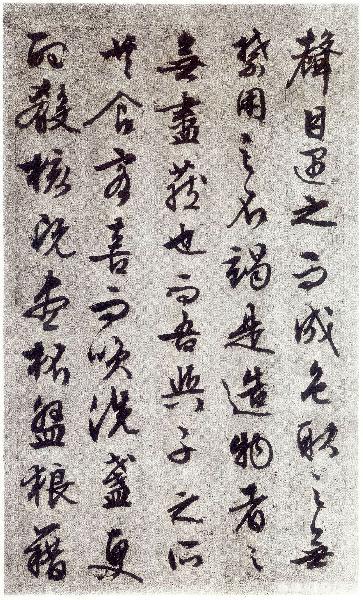 聲目遇之而成色取之無
禁用之不竭是造物者之
無盡藏也而吾與子之所
共食客喜而咲洗盞更
酌殽核既盡杯盤狼藉